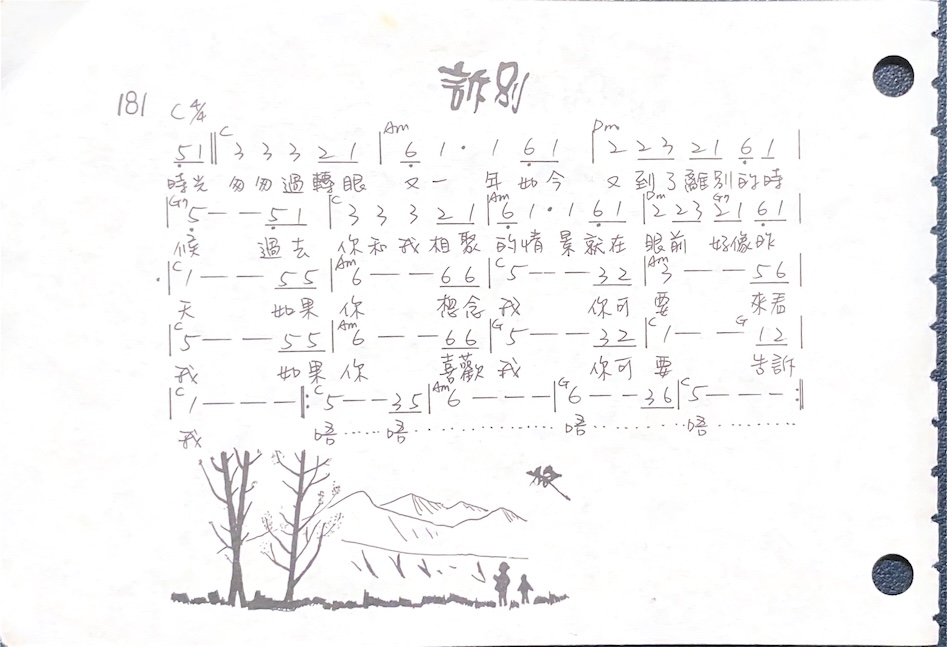 訴別
181 C 4/4
5 1 ‖ C 3 3 3 2 1 | Am 6 1 · 1 6 1 | Dm 2 2 3 2 1 6 1 |
時光 匆匆過轉眼 又一 年如今 又到了離別的時
| G7 5 — — 5 1 | C 3 3 3 2 1 | Am 6 1 · 1 6 1 | Dm 2 2 3 G7 2 1 6 1 |
候 過去 你和我相聚 的情景就在 眼前 好像昨
| C 1 — — 5 5 | Am 6 — — 6 6 | C 5 — — 3 2 | Am 3 — — 5 6 |
天 如果 你 想念 我 你可 要 來看
| C 5 — — 5 5 | Am 6 — — 6 6 | G 5 — — 3 2 | C 1 — — G 1 2 |
我 如果 你 喜歡 我 你可 要 告訴
| C 1 — — — ‖: C 5 — — 3 5 | Am 6 — — — | G 6 — — 3 6 | C 5 — — — :‖
我 唔……唔……………………唔……………唔……………